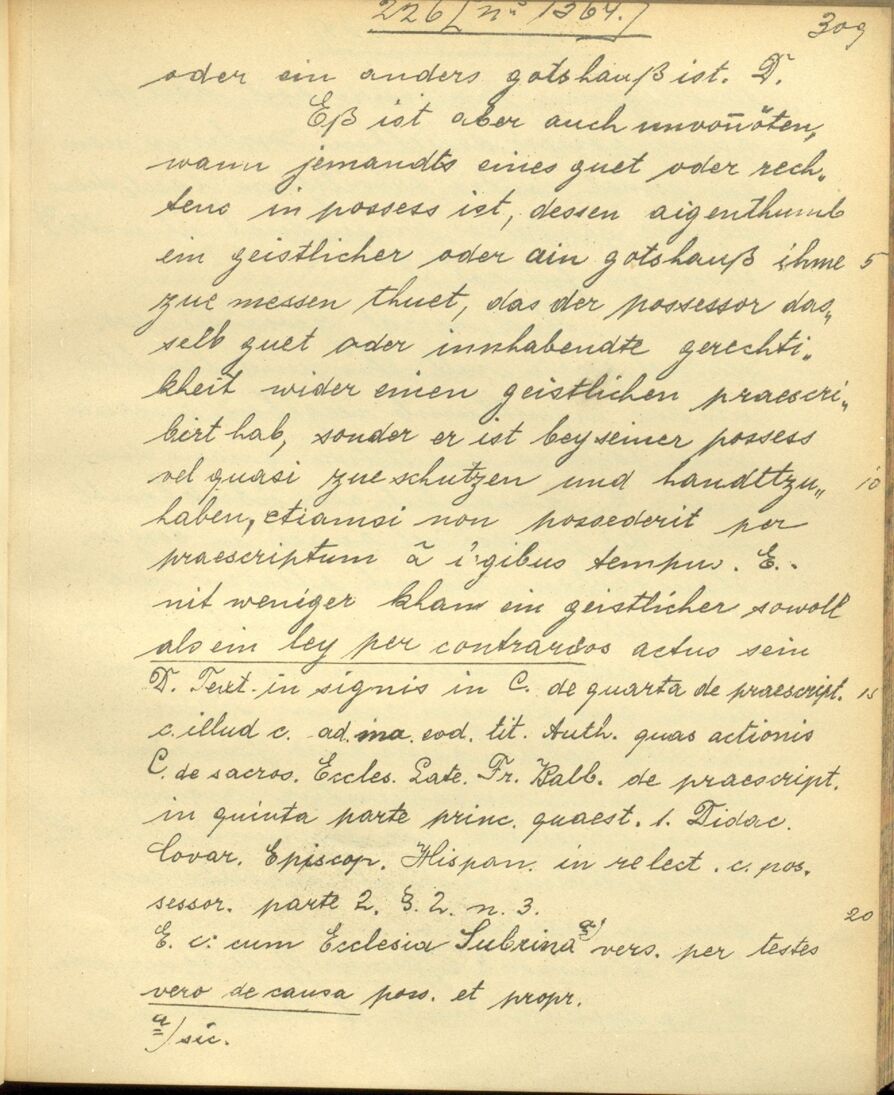 226 [n° 1364.]
309
oder ein anders gotshauß ist. D.
Eß ist aber auch unvonnöten,
wann jemandts eines guet oder rech„
tens in possess ist, dessen aigenthumb
ein geistlicher oder ain gotshauß ihme 5
zue messen thuet, das der possessor das„
selb guet oder innhabendte gerechti„
kheit wider einen geistlichen praescri„
birt hab, sonder er ist bey seiner possess
vel quasi zue schutzen und handttzu„ 10
haben, etiamsi non possederit per
praescriptum à legibus tempus. E.
nit weniger khann ein geistlicher sowoll
als ein ley per contrarios actus sein
D. Text. in signis in C. de quarta de praescript. 15
c. illud c. ad. eod. tit. Auth. quas actionis
C. de sacros. Eccles. Late. Fr. Balb. de praescript.
in quinta parte princ. quaest. 1. Didac.
Covar. Episcop. Hispan. in relect. c. pos„
sessor. parte 2. §. 2. n. 3. 20
E. c: cum Ecclesia Subrina a) vers. per testes
vero de causa poss. et propr.
a) sic.